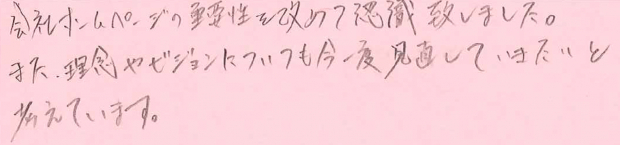 会社ホームページの重要性を改めて認識致しました。
また、理念やビジョンについても今一度見直していきたいと
考えています。